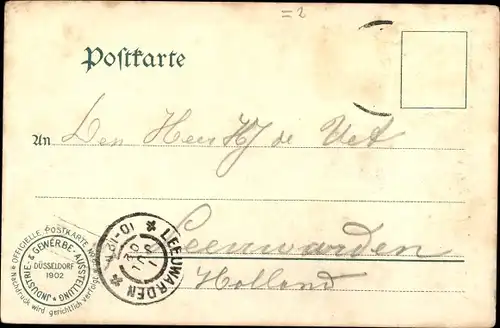 =2
Postkarte
An Den Heer HJ de Vet
Leeuwarden
Holland
LEEUWARDEN
10-12V
OFFICIELLE POSTKARTE
INDUSTRIE- & GEWERBE-AUSSTELLUNG
DÜSSELDORF
1902
Nachdruck wird gerichtlich verfolgt